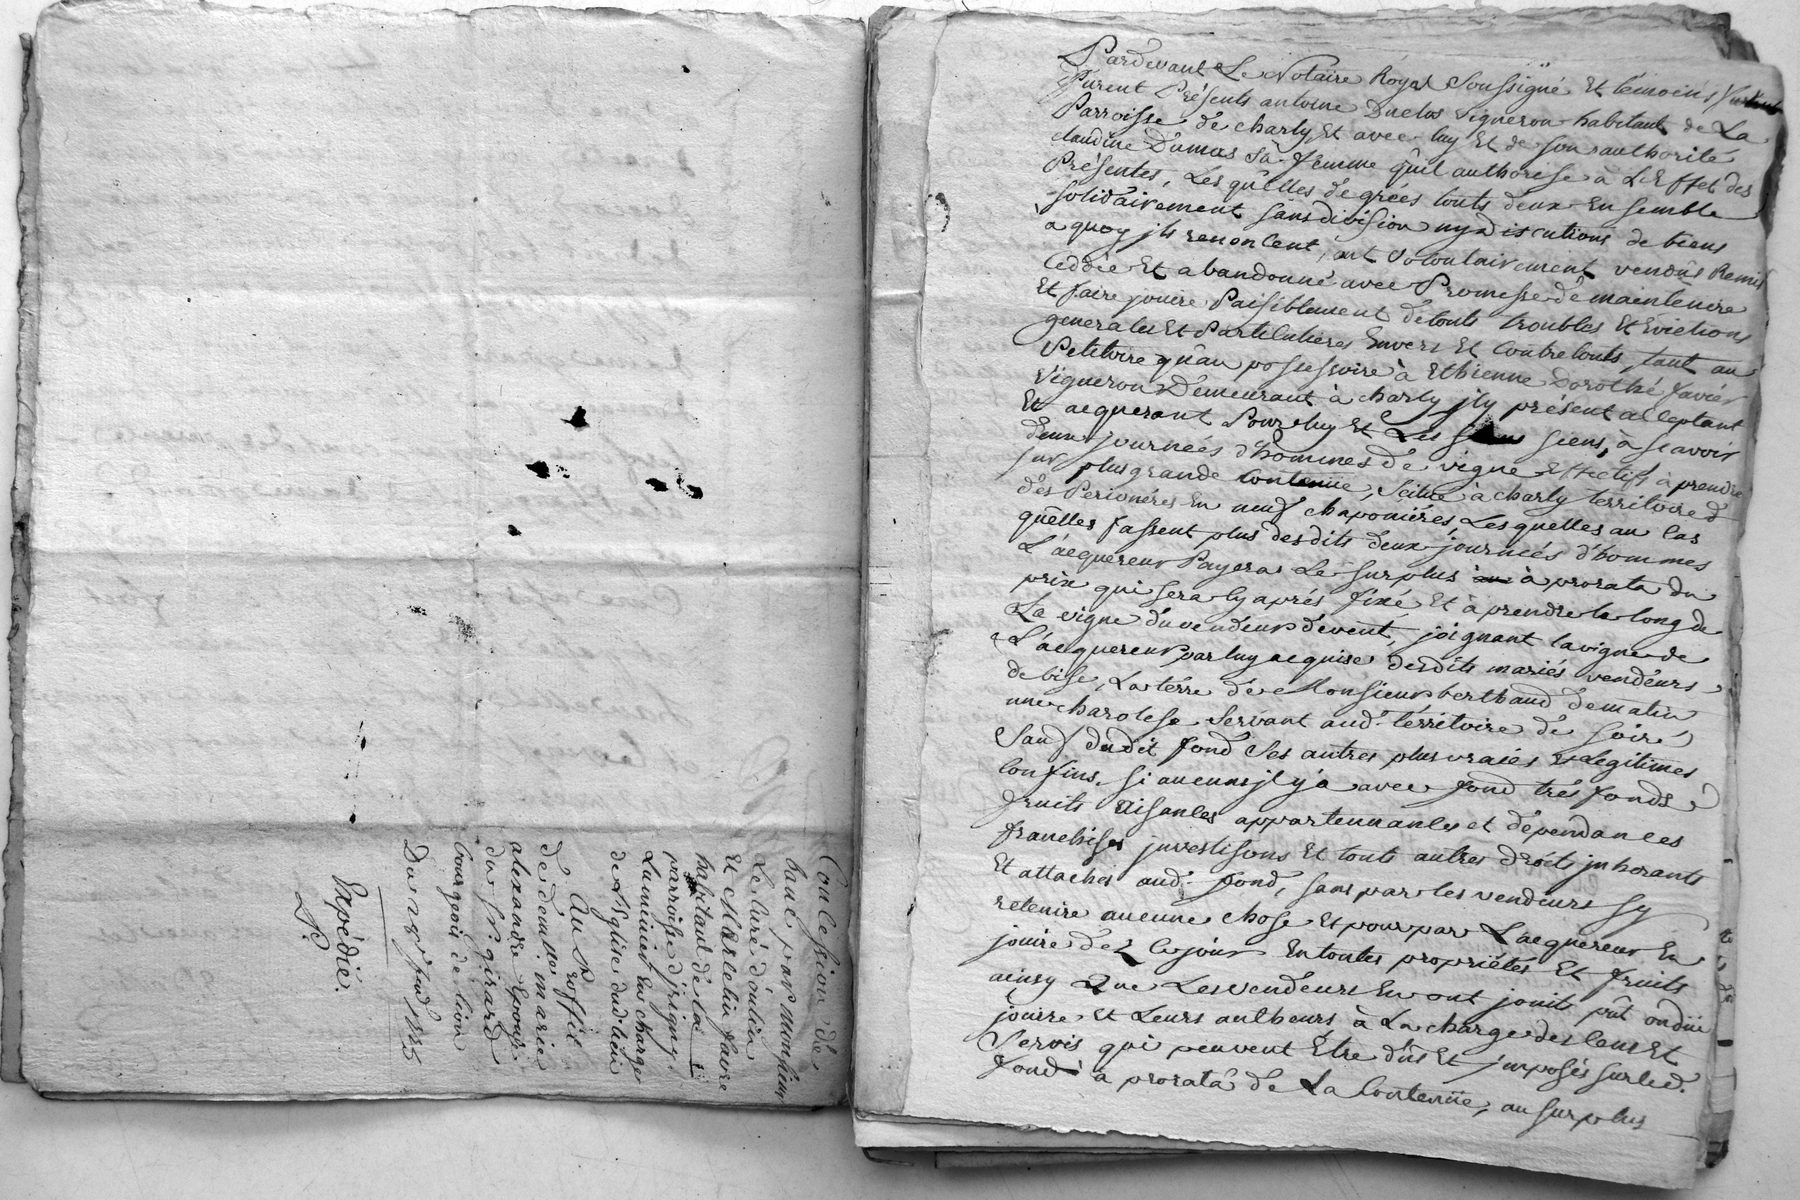 Concession de
banc par Monsieur
Le Curé d'oulin
Et Marcelin favre
habitant de la
parroisse d'jrigny
Luminier En charge
de L'Eglise dud. lieu
Au Proffit
de demlle. marie
alexandre Epouse
du sr. girard
bourgeois de lion
Du
Expédié.
Pardevant Le Notaire Royal Soussigné Et témoins
furent Présents antoine Duclos vigneron habitant de La
Parroisse de charly, Et avec luy Et de son authorité
claudine Dumas Sa femme quil authorise a L'Effet des
Présentes, Les quelles de grées touts deux Ensemble
solidairement sans division ny discutions de biens
a quoy jls renoncent, ont Volontairement vendûs Remis
Ceddée Et abandonné avec Promesse de maintenire
Et faire jouire Paisiblement de touts troubles Et Evictions
generales Et Particulieres Envers Et Contre touts, tant au
Petitoire qu'au possessoire à Ethienne Dorothé favier
Vigneron Demeurant à charly jcy présent acceptant
Et acquerant Pour luy Et Les siens, à scavoir
deux journées d'hommes de vigne Effectifs à prendre
sur plus grande Contenüe, Scitué à charly territoire
des Perionéres En neuf chaponiéres, Les quelles au Cas
quelles fassent plus desdits deux journées d'hommes
L'acquereur Payera Le surplus à prorata du
prix qui sera cy aprés fixé Et à prendre le long de
La vigne du vendeur devent, joignant la vigne de
L'acquereur par luy acquise desdits mariés vendeurs
de bise, La térre de Monsieur berthaud de matin
une charolese Servant aud. térritoire de soir
Sauf dudit fond Ses autres plus vraies Et Legitimes
Confins, si aucuns jl y a avec fond trés fonds
fruits aisances appartennances et dépendances
franchises jnvestisons Et touts autres droits jnhorants
Et attachés aud. fond, sans par les vendeurs sy
retenire aucune chose Et pour par L'acquereur En
jouire déz Ce jour En toutes propriétés Et fruits
ainsy Que Les vendeurs En ont jouit pût ou dü
jouire Et Leurs autheurs à La charge des Cens Et
Servis qui peuvent Étre dûs Et jmposés sur led.
fond à prorata de La Contenüe, au surplus